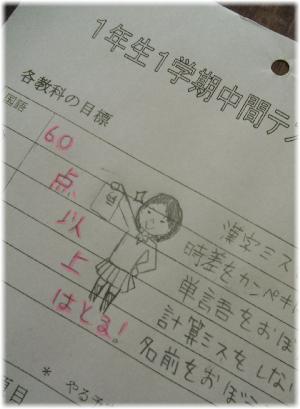 1年生1学期中間テス
各教科の目標
国語
60
点
以
上
はとる!。
漢字ミス
時差をカンペキに
単語をおぼ
計算ミスをしない
名前をおぼ
* やる
項目